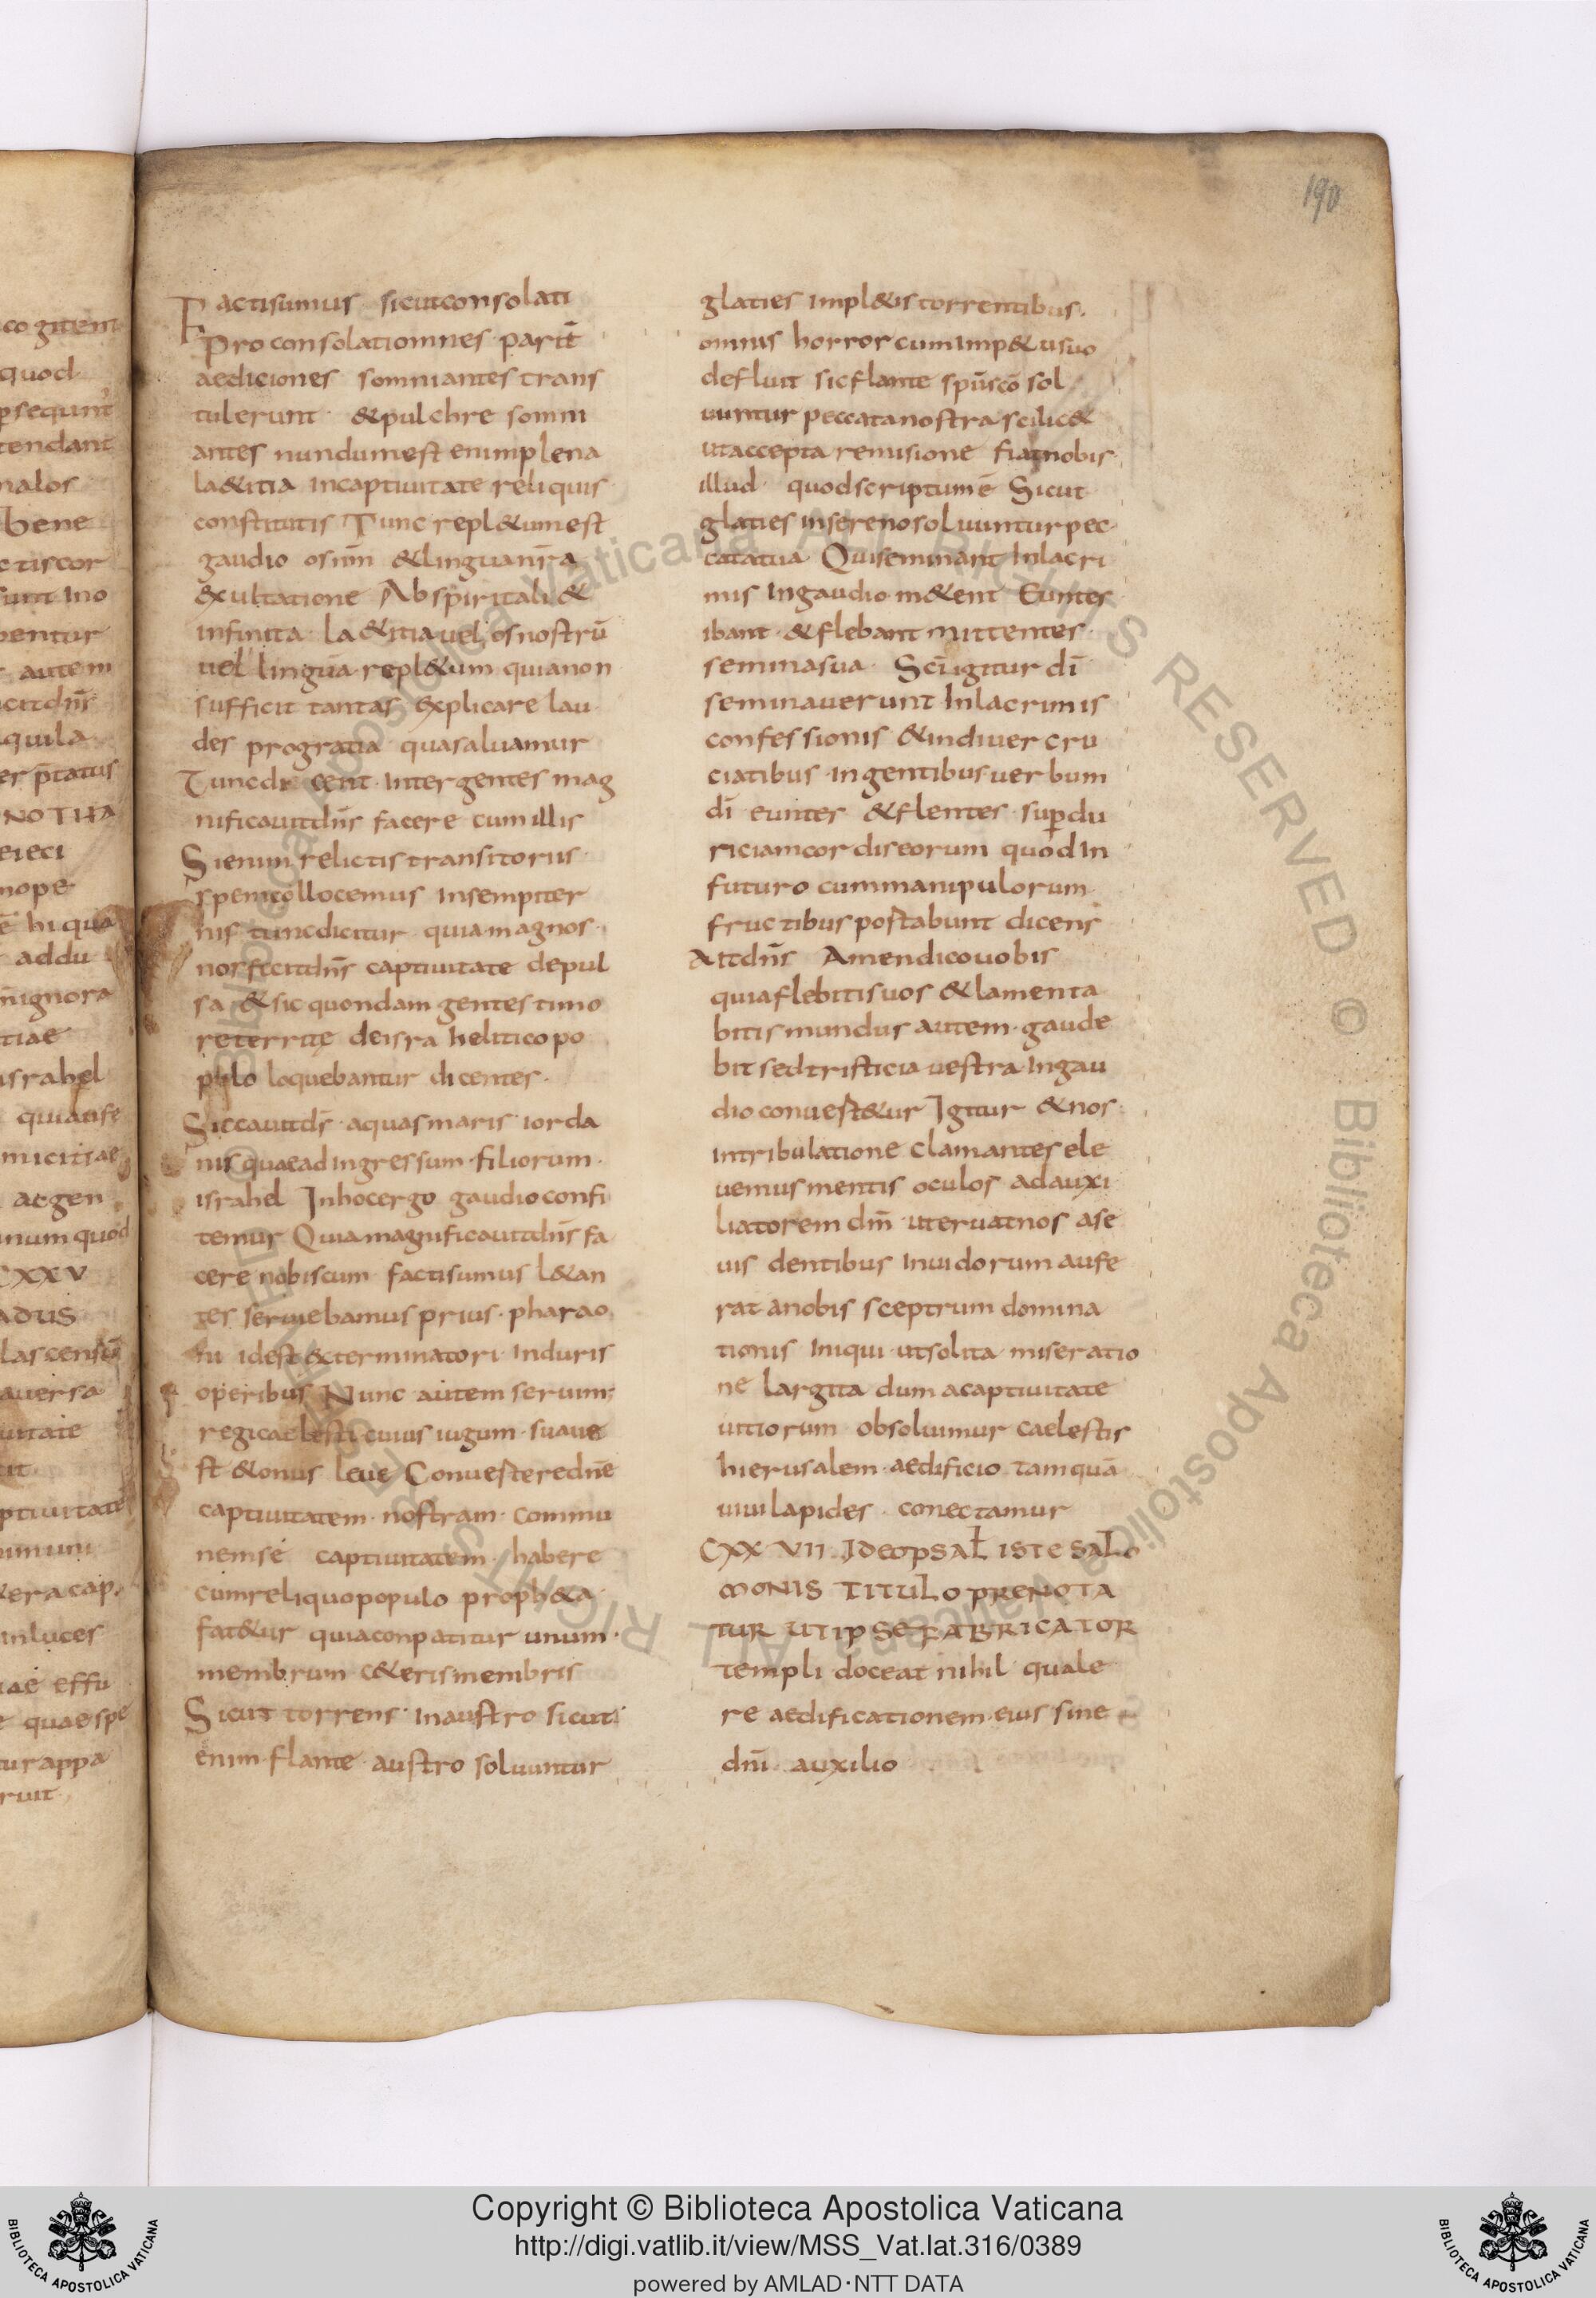 co gitem
quod
psequnt
tendant
malos
bene
c tiscor
sunt Ino
bentur
autem
icitdns
quila
er ptatus
NOTHA
eieci
nope
hi qua
addu
ignora
tiae
israhel
quiaufe
micitiae
ac gen
num quod
CXXV
ADUS
lascensu
auersa
uitate
it
ptiuitate
era cap
inluces
iae effu
e quaespe
tur appa
ruit
190
Factisumus sicutconsolati
Pro consolatiomnes parit
aediciones somniantes trans
tulerunt &pulchre somni
antes nundumest enimplena
la&itia Incaptiuitate reliquis
constitutis Tunc repl&umest
gaudio osnm &linguanra
exultatione Abspiritali &
infinita la&itia uel osnostrū
uel lingua repl&um quianon
sufficit tantas explicare lau
des progratia quasaluamur
Tuncdicent Inter gentes mag
nificauitdns facere cum illis
Sienim relictis transitoriis
spemcollocemus Insempiter
nis tuncdicitur quiamagnos
nosfecitdns captiuitate depul
sa &sic quondam gentes timo
reterrite deisra heliticopo
pulo loquebantur dicentes
Siccauitds aquasmaris iorda
nis quaead ingressum filiorum
israhel Inhocergo gaudio confi
temur Quiamagnificauitdns fa
cere nobiscum factisumus l&an
tes seruiebamus prius pharao
ni idest exterminatori Induris
operibus Nunc autem seruim;
regicaelesti cuius iugum suaue
st &onus leue Conuesteredne
captiuitatem nostram commu
nemse captiuitatem habere
cumreliquopopulo proph&a
fat&ur quiaconpatitur unum
membrum c&erismembris
Sicut torrens Inaustro sicut
enim flante austro soluuntur
glaties Impl&is torrentibus
omnis horror cumimp&usuo
defluit sicflante spuscō sol
uuntur peccatanostra scilic&
utaccepta remisione fiatnobis
illud quodscriptumē Sicut
glaties insereno soluunturpec
catatua Quiseminant Inlacri
mis Ingaudio m&ent Euntes
ibant &flebant mittentes
seminasua Sciigitur dī
seminauerunt Inlacrimis
confessionis &indiuer cru
ciatibus Ingentibus uerbum
dī euntes &flentes supdu
riciamcordiseorum quod In
futuro cummanipulorum
fructibus postabunt dicens
Aitdns Amendicouobis
quiaflebitisuos &lamenta
bitis mundus autem gaude
bit sedtristicia uestra Ingau
dio conuest&ur Igitur &nos
Intribulatione clamantes ele
uemus mentis oculos adauxi
liatorem dm ut eruatnos ase
uis dentibus Inuidorum aufe
rat anobis sceptrum domina
tionis Iniqui utsolita miseratio
ne largita dum acaptiuitate
uitiorum obsoluimur caelestis
hierusalem aedificio tamquā
uiuilapides conectamur
CXX VII IDEOPSAL ISTE SALO
MONIS TITULO PRENOTA
TUR UTIPSE FABRICATOR
templi doceat nihil quale
re aedificationem eius sine
dni auxilio
Copyright © Biblioteca Apostolica Vaticana
http://digi.vatlib.it/view/MSS_Vat.lat.316/0389
powered by AMLAD·NTT DATA
BIBLIOTECA APOSTOLICA VATICANA
BIBLIOTECA APOSTOLICA VATICANA